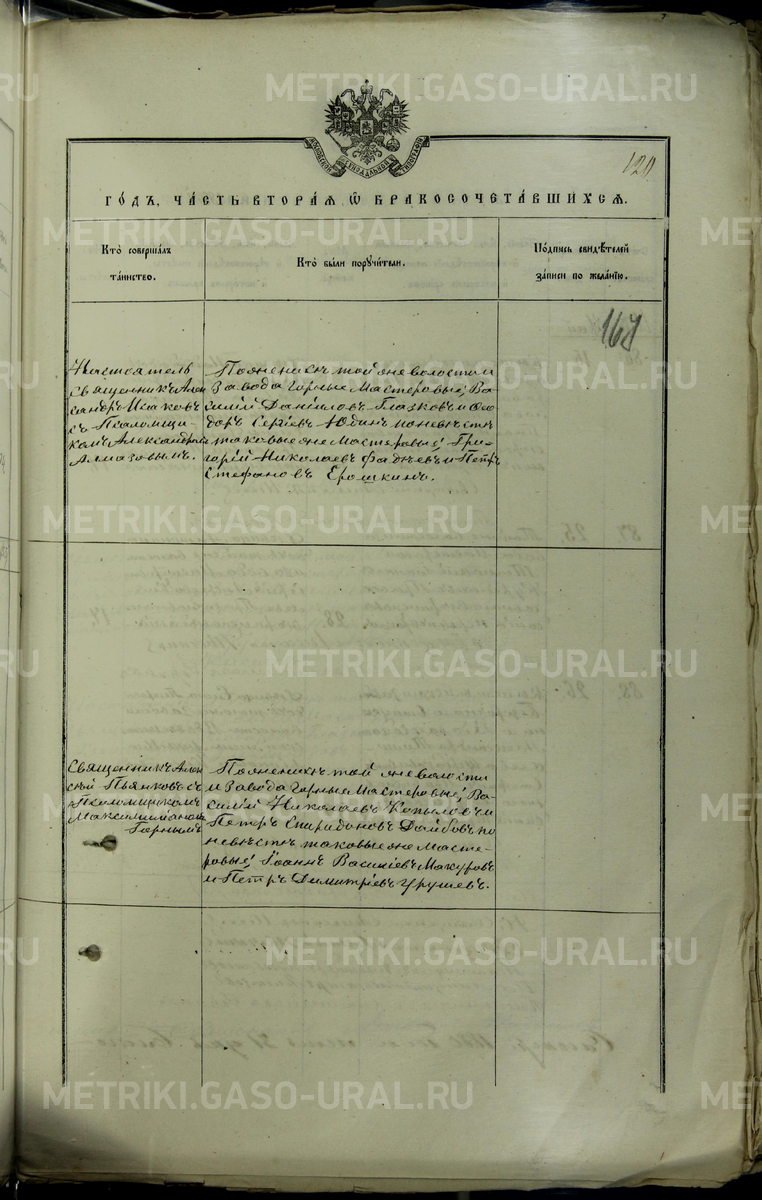 METRIKI.GASO-URAL.RU
120
ГО́ДЪ, ЧА́СТЬ ВТОРА́Я Ѡ҆ БРАКОСОЧЕТА́ВШИХСЯ.
Кто̀ совершáлъ
тáинство.
Кто̀ бы́ли поручи́тели.
По́дпись свидѣ́телей
зáписи по желáнію.
167
Настоятель
Священникъ Алек
сандръ Исаковъ
съ Псаломщи-
комъ Александромъ
Алмазовымъ.
По женихѣ той же волости и
завода горные Мастеровые, Ва
силій Даніиловъ Глазковъ и Фео
доръ Сергіевъ Юдинъ по невѣстѣ
таковые же Мастеровые, Гри-
горій Николаевъ Фадѣевъ и Петръ
Стефановъ Ерошкинъ.
Священникъ Алек
сѣй Пьянковъ съ
Псаломщикомъ
Горнымъ
По женихѣ той же волости
и завода горные Мастеровые, Ва-
силій Николаевъ Копыловъ и
Петръ Спиридоновъ по
невѣстѣ таковые же Масте-
ровые, Іоаннъ Василіевъ Макуровъ
и Петръ Димитріевъ Урушевъ.
METRIKI.GASO-URAL.RU